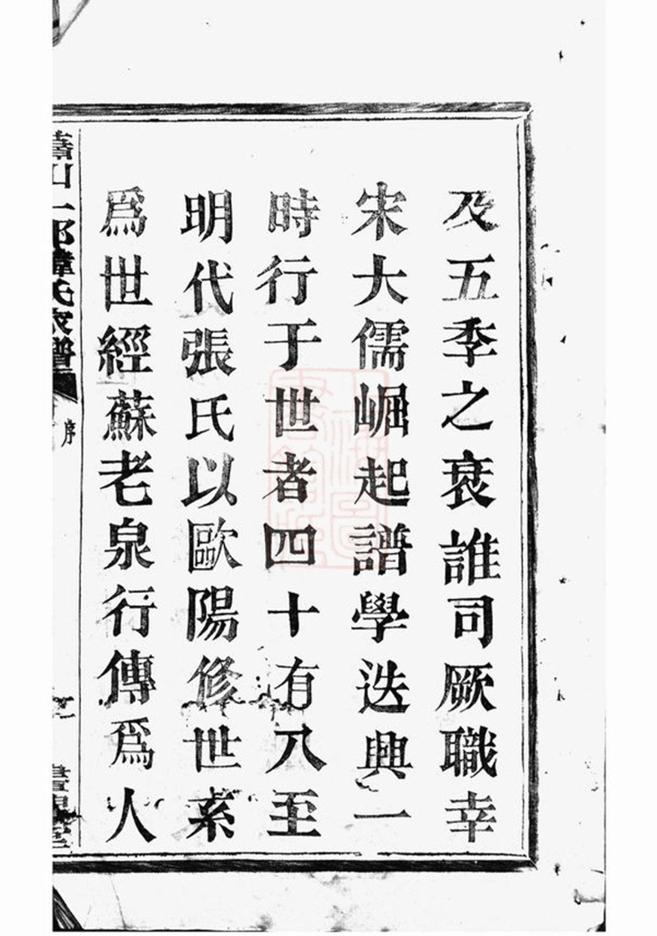 及五季之衰誰司厥職幸
宋大儒崛起譜學迭興一
時行于世者四十有八至
明代張氏以歐陽修世系
為世經蘇老泉行傳為人
蕭山一都韓氏家譜
序
一